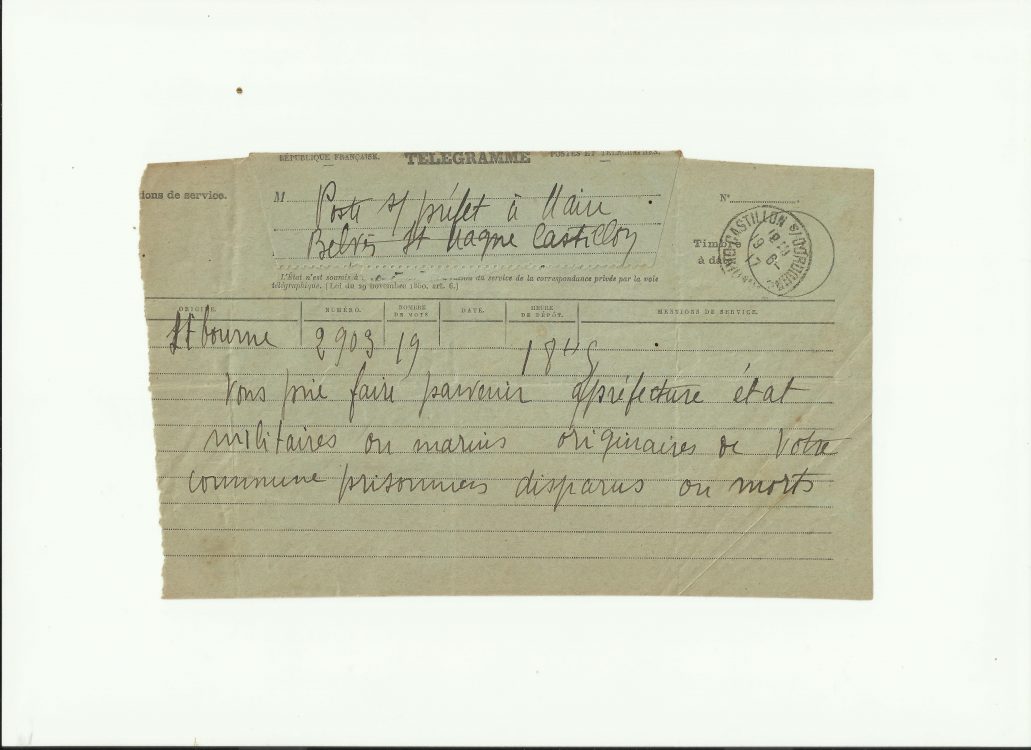 RÉPUBLIQUE FRANÇAISE. TÉLÉGRAMME POSTES ET TÉLÉGRAPHES.
ions de service.
M Poste s/ préfet à Maire
Belvès St Magne Castillon
N°
Timbre
à date
CASTILLON S/ DORDOGNE
L'État n'est soumis à du service de la correspondance privée par la voie
télégraphique. (Loi du 29 novembre 1850, art. 6.)
ORIGINE. NUMÉRO. NOMBRE DE MOTS DATE. HEURE DE DÉPÔT. MENTIONS DE SERVICE.
Libourne 2903 19
Vous prie faire parvenir s/préfecture état
militaires ou marins originaires de votre
commune prisonniers disparus ou morts